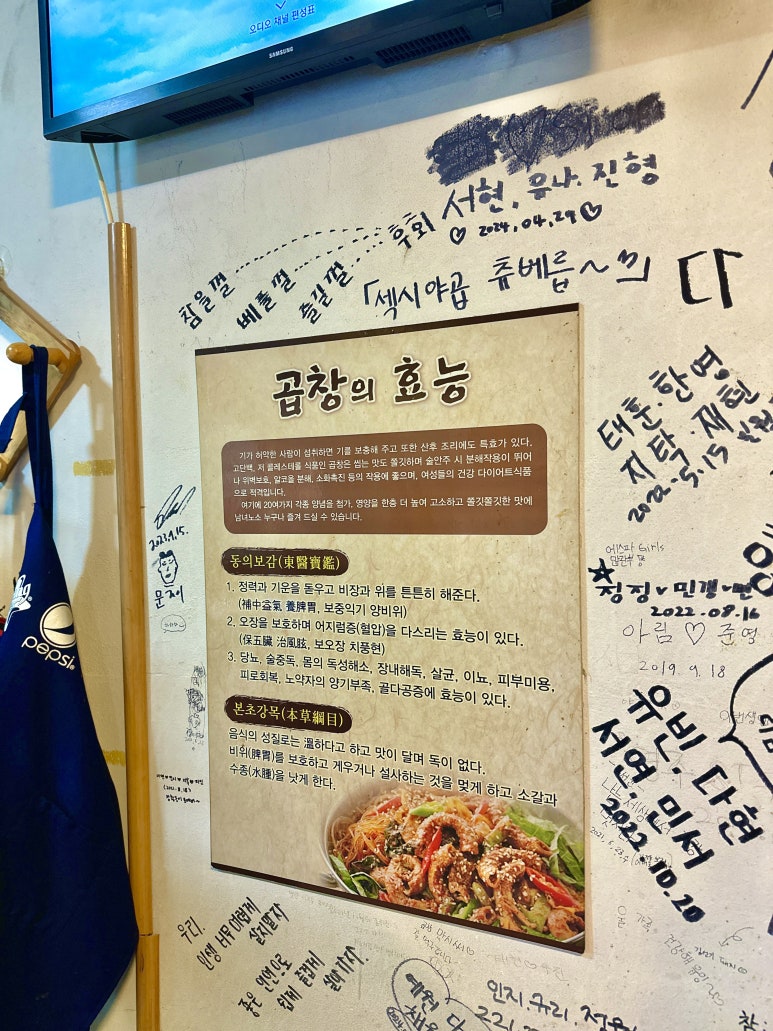 오디오 채널 편성표
SAMSUNG
서현, 유나, 진형
2024.04.29
후회
참을껄
베풀껄
즐길껄
「섹시야곱 츄베릅~
다
곱창의 효능
기가 허약한 사람이 섭취하면 기를 보충해 주고 또한 산후 조리에도 특효가 있다.
고단백, 저 콜레스테롤 식품인 곱창은 씹는 맛도 쫄깃하며 술안주 시 분해작용이 뛰어
나 위벽보호, 알코올 분해, 소화촉진 등의 작용에 좋으며, 여성들의 건강 다이어트식품
으로 적격입니다.
여기에 20여가지 각종 양념을 첨가, 영양을 한층 더 높여 고소하고 쫄깃쫄깃한 맛에
남녀노소 누구나 즐겨 드실 수 있습니다.
동의보감(東醫寶鑑)
1. 정력과 기운을 돋우고 비장과 위를 튼튼히 해준다.
(補中益氣 養脾胃, 보중익기 양비위)
2. 오장을 보호하며 어지럼증(혈압)을 다스리는 효능이 있다.
(保五臟 治風眩, 보오장 치풍현)
3. 당뇨, 술중독, 몸의 독성해소, 장내해독, 살균, 이뇨, 피부미용,
피로회복, 노약자의 양기부족, 골다공증에 효능이 있다.
본초강목(本草綱目)
음식의 성질로는 溫하다고 하고 맛이 달며 독이 없다.
비위(脾胃)를 보호하고 게우거나 설사하는 것을 멎게 하고 소갈과
수종(水腫)을 낫게 한다.
태훈.한영
지탁.재현
2022.5.15
2023.9.15.
문재이
pepsi
에스파 Girls
2022.08.16
아림 ♡ 준열
2019.9.18
유빈. 다연
서영. 민서
2022.10.20
우리.
인생 너무 이렇게
살지말자
좋은 인연으로
쉽게 즐겁게
살다 가자.
예원
인지.규리.정